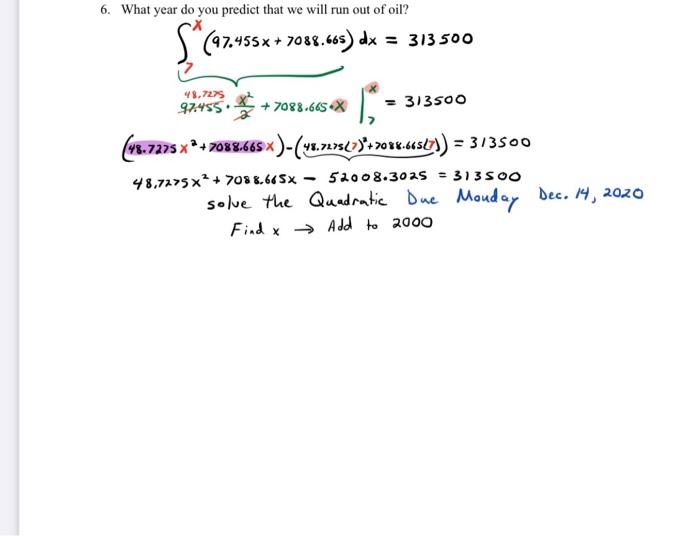 6. What year do you predict that we will run out of oil?
∫₇ˣ (97.455x + 7088.665) dx = 313500
48.7275
97.455 · x²/2 + 7088.665 · x |₇ˣ = 313500
(48.7275x² + 7088.665x) - (48.7275(7)² + 7088.665(7)) = 313500
48.7275x² + 7088.665x - 52008.3025 = 313500
solve the Quadratic Due Monday Dec. 14, 2020
Find x → Add to 2000